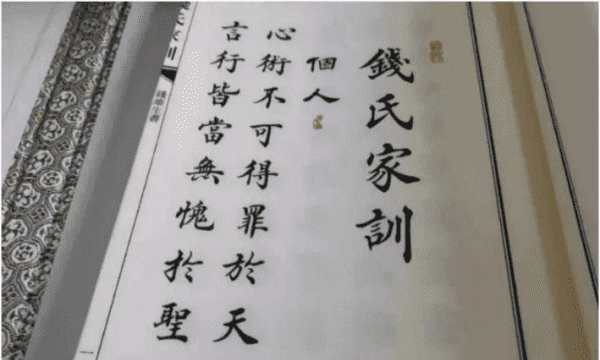 錢氏家訓
個人
心術不可得罪於天
言行皆當無愧扵聖
氏家訓
一